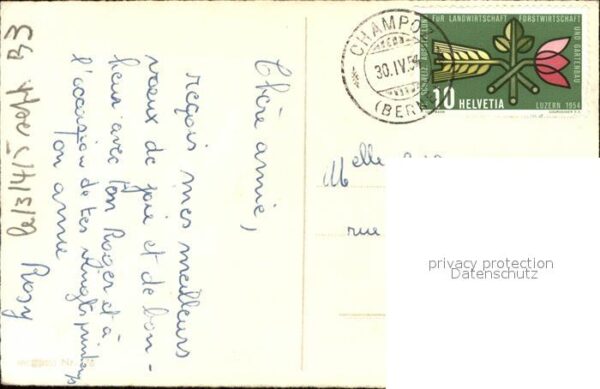 Chère amie,
reçois mes meilleurs
voeux de joie et de bon-
heur avec ton Roger et à
l'occasion de tes vingts printemps
ton amie
Rosy
CHAMPO
30.IV.54
(BERN)
FÜR LANDWIRTSCHAFT FORSTWIRTSCHAFT
UND GARTENBAU
10 HELVETIA
LUZERN 1954
Melle
rue
privacy protection
Datenschutz